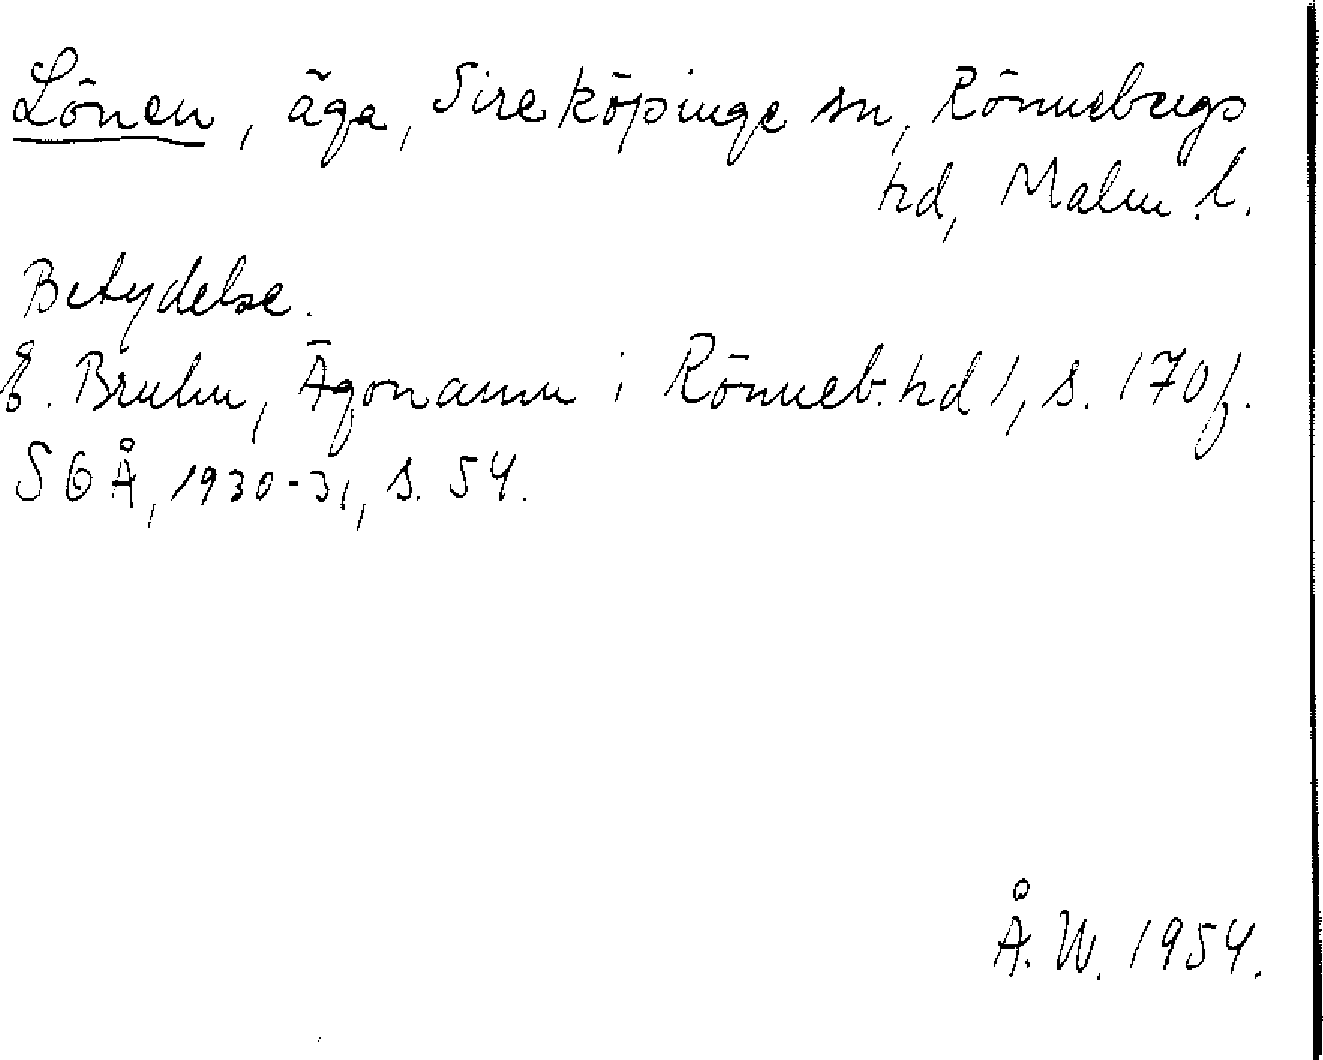 Lönen, äga, Sireköpinge sn, Rönnebergs
hd, Malm. l.
Betydelse.
E. Bruhn, Ägonamn i Rönneb. hd 1, s. 170 f.
SOÅ, 1930-31, s. 54.
Å. W. 1954.